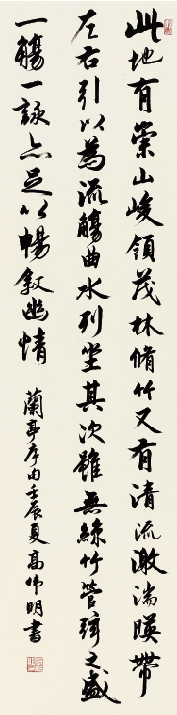 此地有崇山峻領茂林脩竹又有清流激湍暎帶
左右引以為流觴曲水列坐其次雖無絲竹管弦之盛
一觴一詠亦足以暢敘幽情
蘭亭序句壬辰夏高偉明書